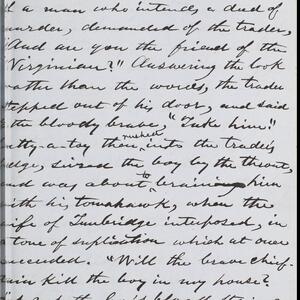 d a man who intends a deed of
murder, demanded of the trader,
"And are you the friend of the
Virginian?" Answering the look
rather than the words, the trader
stepped out of his door, and said
the bloody brave, "Take him!"
rushed
then into the trader's
lodge, seized the boy by the throat,
and was about to braining him
with his tomahawk, when the
wife of Tunbridge interposed, in
a tone of suplication which at once
succeeded. "Will the brave chief-
tain kill the boy in my house?